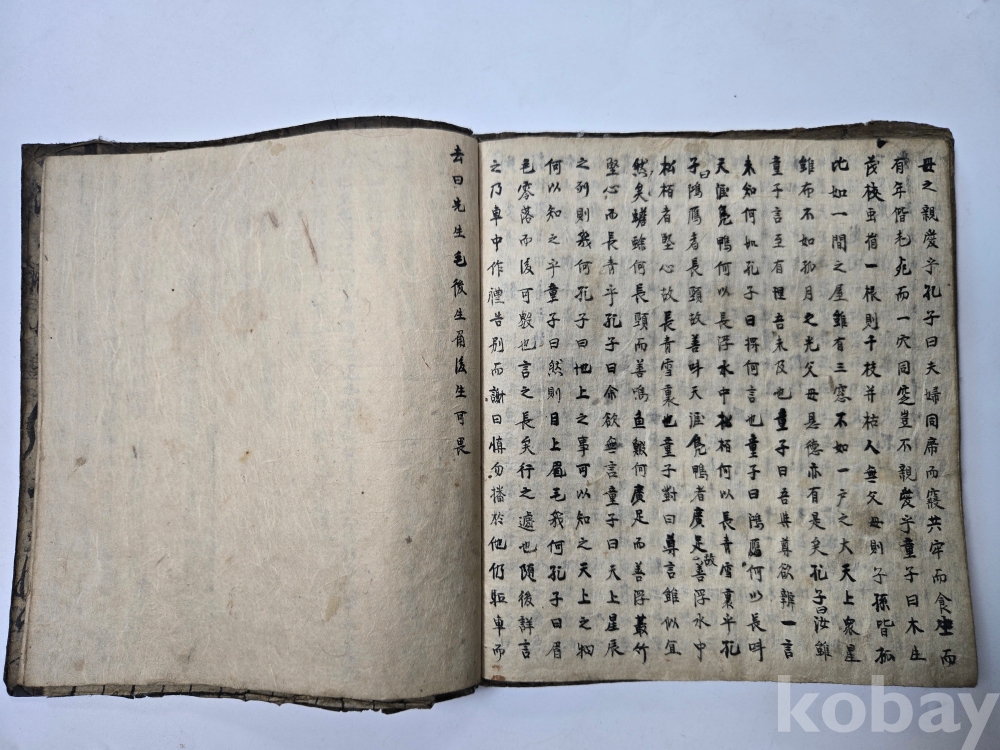 母之親愛乎孔子曰夫婦同席而寢共牢而食生而
有年偕老死而一穴同窆豈不親愛乎童子曰木生
茂枝虫損一根則千枝并枯人無父母則子孫皆孤
比如一間之屋雖有三窓不如一戶之大天上衆星
雖布不如孤月之光父母恩德亦有是矣孔子曰汝雖
童子言至有理吾未及也童子曰吾与尊欲辨一言
未知何如孔子曰擇何言也童子曰鴻鴈何以長呌
天涯鳧鴨何以長浮水中松栢何以長青雪裏乎孔
子曰鴻鴈者長頸故善呌天涯鳧鴨者廣足故善浮水中
松栢者堅心故長青雪裏也童子對曰尊言雖似宜
然矣蟾蜍何長頸而善鳴魚鰕何廣足而善浮叢竹
堅心而長青乎孔子曰余欲無言童子曰天上星辰
之列則幾何孔子曰地上之事可以知之天上之物
何以知之乎童子曰然則目上眉毛幾何孔子曰眉
毛零落而後可數也言之長矣行之遽也隨後詳言
之乃車中作禮告別而謝曰愼勿播於他仍駈車而
去曰先生毛後生角後生可畏
kobay